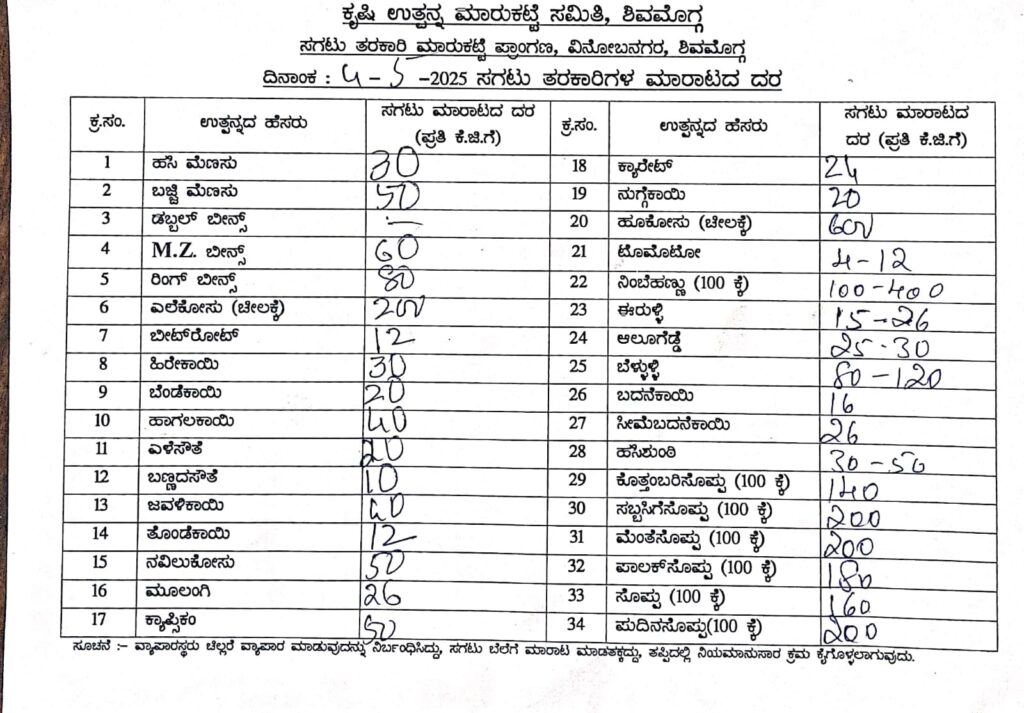 ಕೃಷಿ ಉತ್ಪನ್ನ ಮಾರುಕಟ್ಟೆ ಸಮಿತಿ, ಶಿವಮೊಗ್ಗ
ಸಗಟು ತರಕಾರಿ ಮಾರುಕಟ್ಟೆ ಪ್ರಾಂಗಣ, ವಿನೋಬನಗರ, ಶಿವಮೊಗ್ಗ
ದಿನಾಂಕ : 4-5-2025 ಸಗಟು ತರಕಾರಿಗಳ ಮಾರಾಟದ ದರ
ಕ್ರ.ಸಂ. ಉತ್ಪನ್ನದ ಹೆಸರು ಸಗಟು ಮಾರಾಟದ ದರ (ಪ್ರತಿ ಕೆ.ಜಿ.ಗೆ) ಕ್ರ.ಸಂ. ಉತ್ಪನ್ನದ ಹೆಸರು ಸಗಟು ಮಾರಾಟದ ದರ (ಪ್ರತಿ ಕೆ.ಜಿ.ಗೆ)
1 ಹಸಿ ಮೆಣಸು 30 18 ಕ್ಯಾರೇಟ್ 24
2 ಬಜ್ಜಿ ಮೆಣಸು 50 19 ನುಗ್ಗೆಕಾಯಿ 20
3 ಡಬ್ಬಲ್ ಬೀನ್ಸ್ – 20 ಹೂಕೋಸು (ಚೀಲಕ್ಕೆ) 600
4 M.Z. ಬೀನ್ಸ್ 60 21 ಟೊಮೊಟೋ 4-12
5 ರಿಂಗ್ ಬೀನ್ಸ್ 80 22 ನಿಂಬೆಹಣ್ಣು (100 ಕ್ಕೆ) 100-400
6 ಎಲೆಕೋಸು (ಚೀಲಕ್ಕೆ) 200 23 ಈರುಳ್ಳಿ 15-26
7 ಬೀಟ್‌ರೋಟ್ 12 24 ಆಲೂಗೆಡ್ಡೆ 25-30
8 ಹಿರೇಕಾಯಿ 30 25 ಬೆಳ್ಳುಳ್ಳಿ 80-120
9 ಬೆಂಡೆಕಾಯಿ 20 26 ಬದನೆಕಾಯಿ 16
10 ಹಾಗಲಕಾಯಿ 40 27 ಸೀಮೆಬದನೆಕಾಯಿ 26
11 ಎಳೆಸೌತೆ 20 28 ಹಸಿಶುಂಠಿ 30-50
12 ಬಣ್ಣದಸೌತೆ 10 29 ಕೊತ್ತಂಬರಿಸೊಪ್ಪು (100 ಕ್ಕೆ) 140
13 ಜವಳಿಕಾಯಿ 40 30 ಸಬ್ಬಸಿಗೆಸೊಪ್ಪು (100 ಕ್ಕೆ) 200
14 ತೊಂಡೆಕಾಯಿ 12 31 ಮೆಂತೆಸೊಪ್ಪು (100 ಕ್ಕೆ) 200
15 ನವಿಲುಕೋಸು 50 32 ಪಾಲಕ್‌ಸೊಪ್ಪು (100 ಕ್ಕೆ) 180
16 ಮೂಲಂಗಿ 26 33 ಸೊಪ್ಪು (100 ಕ್ಕೆ) 160
17 ಕ್ಯಾಪ್ಸಿಕಂ 50 34 ಪುದಿನಸೊಪ್ಪು(100 ಕ್ಕೆ) 200
ಸೂಚನೆ :– ವ್ಯಾಪಾರಸ್ಥರು ಚಿಲ್ಲರೆ ವ್ಯಾಪಾರ ಮಾಡುವುದನ್ನು ನಿರ್ಬಂಧಿಸಿದ್ದು, ಸಗಟು ಬೆಲೆಗೆ ಮಾರಾಟ ಮಾಡತಕ್ಕದ್ದು, ತಪ್ಪಿದಲ್ಲಿ ನಿಯಮಾನುಸಾರ ಕ್ರಮ ಕೈಗೊಳ್ಳಲಾಗುವುದು.